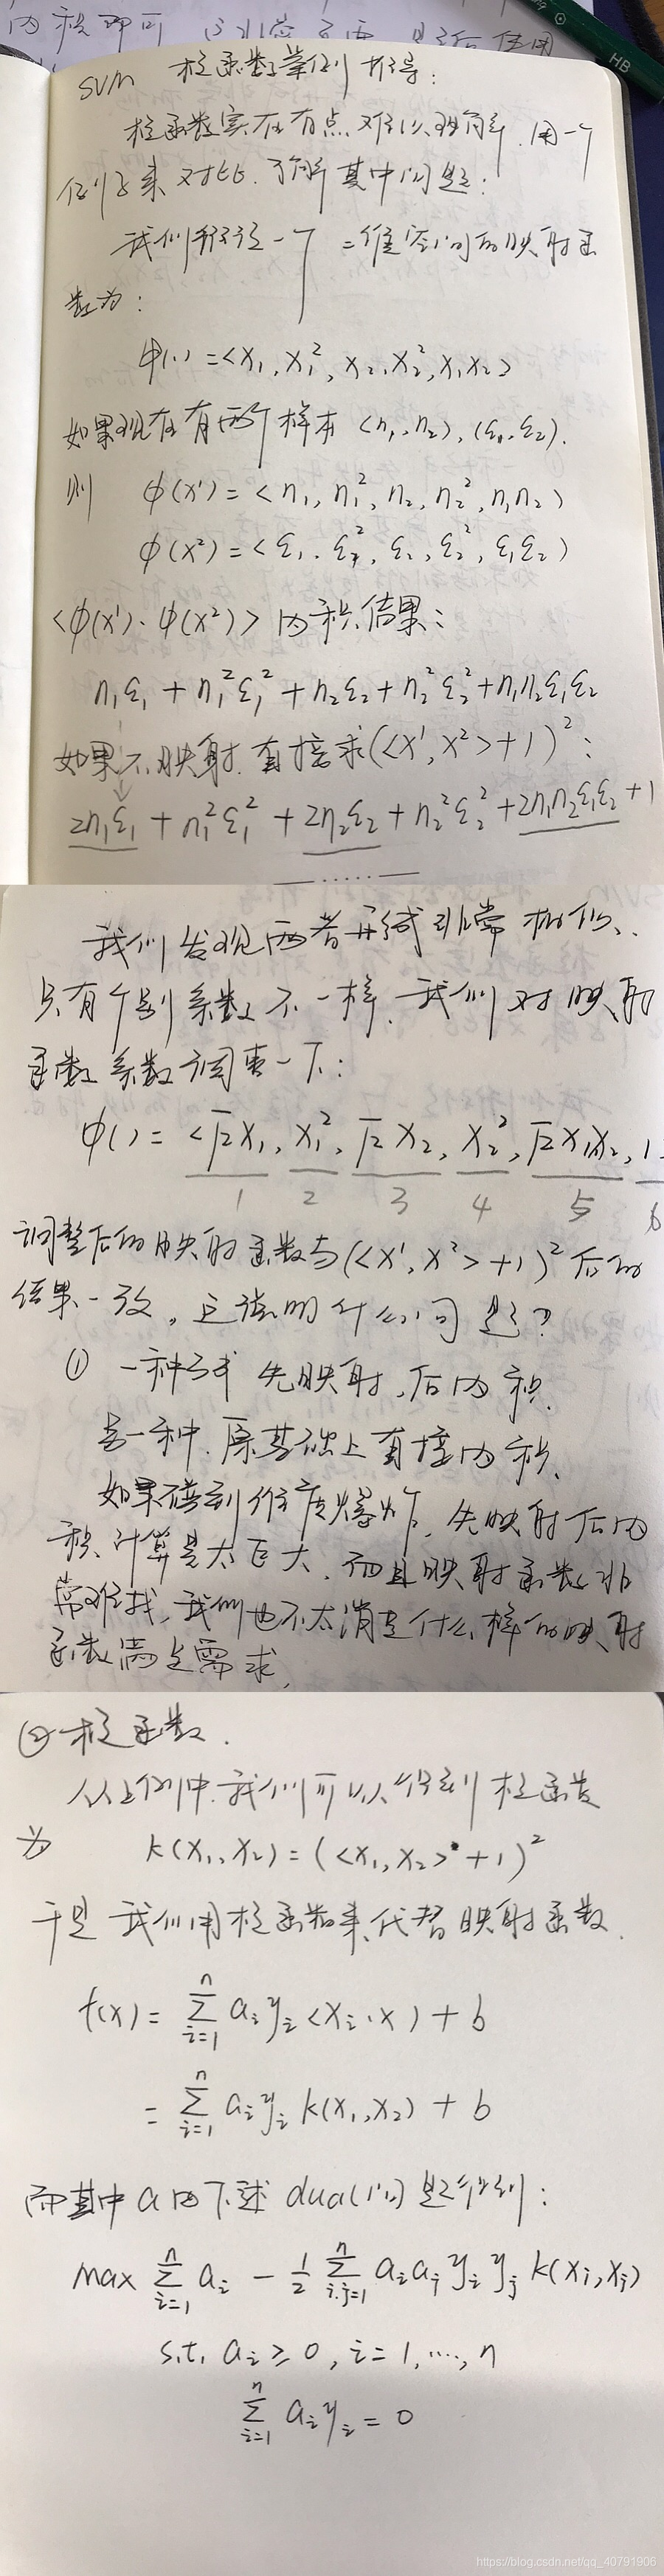 内积即可
使用
HB
SVM 核函数举例推导:
核函数实在有点难以理解.用一个
例子来对比.了解其中问题:
我们假设一个二维空间的映射函
数为:
φ(·) = <X₁, X₁², X₂, X₂², X₁X₂>
如果现在有两个样本 (η₁, η₂), (ξ₁, ξ₂).
则 φ(x¹) = <η₁, η₁², η₂, η₂², η₁η₂>
φ(x²) = <ξ₁, ξ₁², ξ₂, ξ₂², ξ₁ξ₂>
<φ(x¹)·φ(x²)> 内积结果:
η₁ξ₁ + η₁²ξ₁² + η₂ξ₂ + η₂²ξ₂² + η₁η₂ξ₁ξ₂
如果不映射.直接求(<x¹, x²>+1)²:
2η₁ξ₁ + η₁²ξ₁² + 2η₂ξ₂ + η₂²ξ₂² + 2η₁η₂ξ₁ξ₂ + 1
......
我们发现两者形式非常相似、
只有个别系数不一样.我们对映射
函数系数调整一下:
φ() = <√2X₁, X₁², √2X₂, X₂², √2X₁X₂, 1>
1 2 3 4 5 6
调整后的映射函数与(<x¹, x²>+1)²后的
结果一致,这说明什么问题?
① 一种方式 先映射,后内积.
另一种.原基础上直接内积、
如果碰到维度爆炸,先映射后内
积计算是太巨大.而且映射函数非
常难找,我们也不太清楚什么样的映射
函数满足需求.
② 核函数.
从上例中.我们可以得到核函数
为 k(X₁, X₂) = (<X₁, X₂>+1)²
于是我们用核函数来代替映射函数.
f(x) = Σᵢ₌₁ⁿ aᵢyᵢ<Xᵢ·X> + b
= Σᵢ₌₁ⁿ aᵢyᵢ k(X₁, X₂) + b
而其中a由下述dual问题得到:
max Σᵢ₌₁ⁿ aᵢ - 1/2 Σᵢ,ⱼ₌₁ⁿ aᵢaⱼyᵢyⱼk(Xᵢ, Xⱼ)
s.t. aᵢ ≥ 0, i = 1, ..., n
Σᵢ₌₁ⁿ aᵢyᵢ = 0
https://blog.csdn.net/qq_40791906